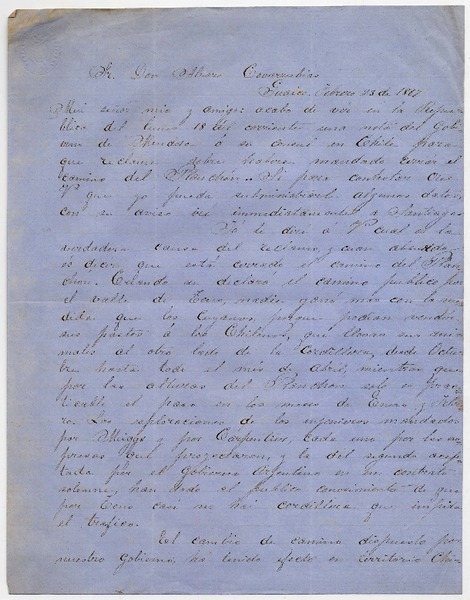 Sr. Don Alvaro Covarrubias
Guaico, Febrero 23 de 1867
Mui señor mio y amigo: acabo de ver en la Repú-
blica del lunes 18 del corriente una nota del Gob
de Mendoza a su consul en Chile para
que reclame sobre haberse mandado cerrar el
camino del Planchon. Si para contestar cree
V que yo pueda subministrarle algunos datos,
con su aviso iré inmediatamente a Santiago
Ya le diré a V cual es la
verdadera causa del reclamo, y cuan absurdo
es decir que está cerrado el camino del Plan-
chon. Cuando se declaró el camino publico por
el valle de Teno, nadie ganó mas con la me-
dida que los Cuyanos, porque podian vender
sus pastos á los Chilenos, que llevan sus ani-
males al otro lado de la Cordillera, desde Octu-
bre hasta todo el mes de Abril, mientras que
por las alturas del Planchon solo es prac-
ticable el paso en los meses de Enero y Febre-
ro. Las exploraciones de los injenieros mandados
por Meiggs y por Carpentier, cada uno por las em-
presas que proyectaron, y la del segundo acep-
tada por el Gobierno Argentino en un contrato
solemne, han dado el publico conocimiento de que
por Teno casi no hai cordillera que impida
el trafico.
El cambio de camino dispuesto por
nuestro Gobierno, ha tenido efecto en territorio Chile-